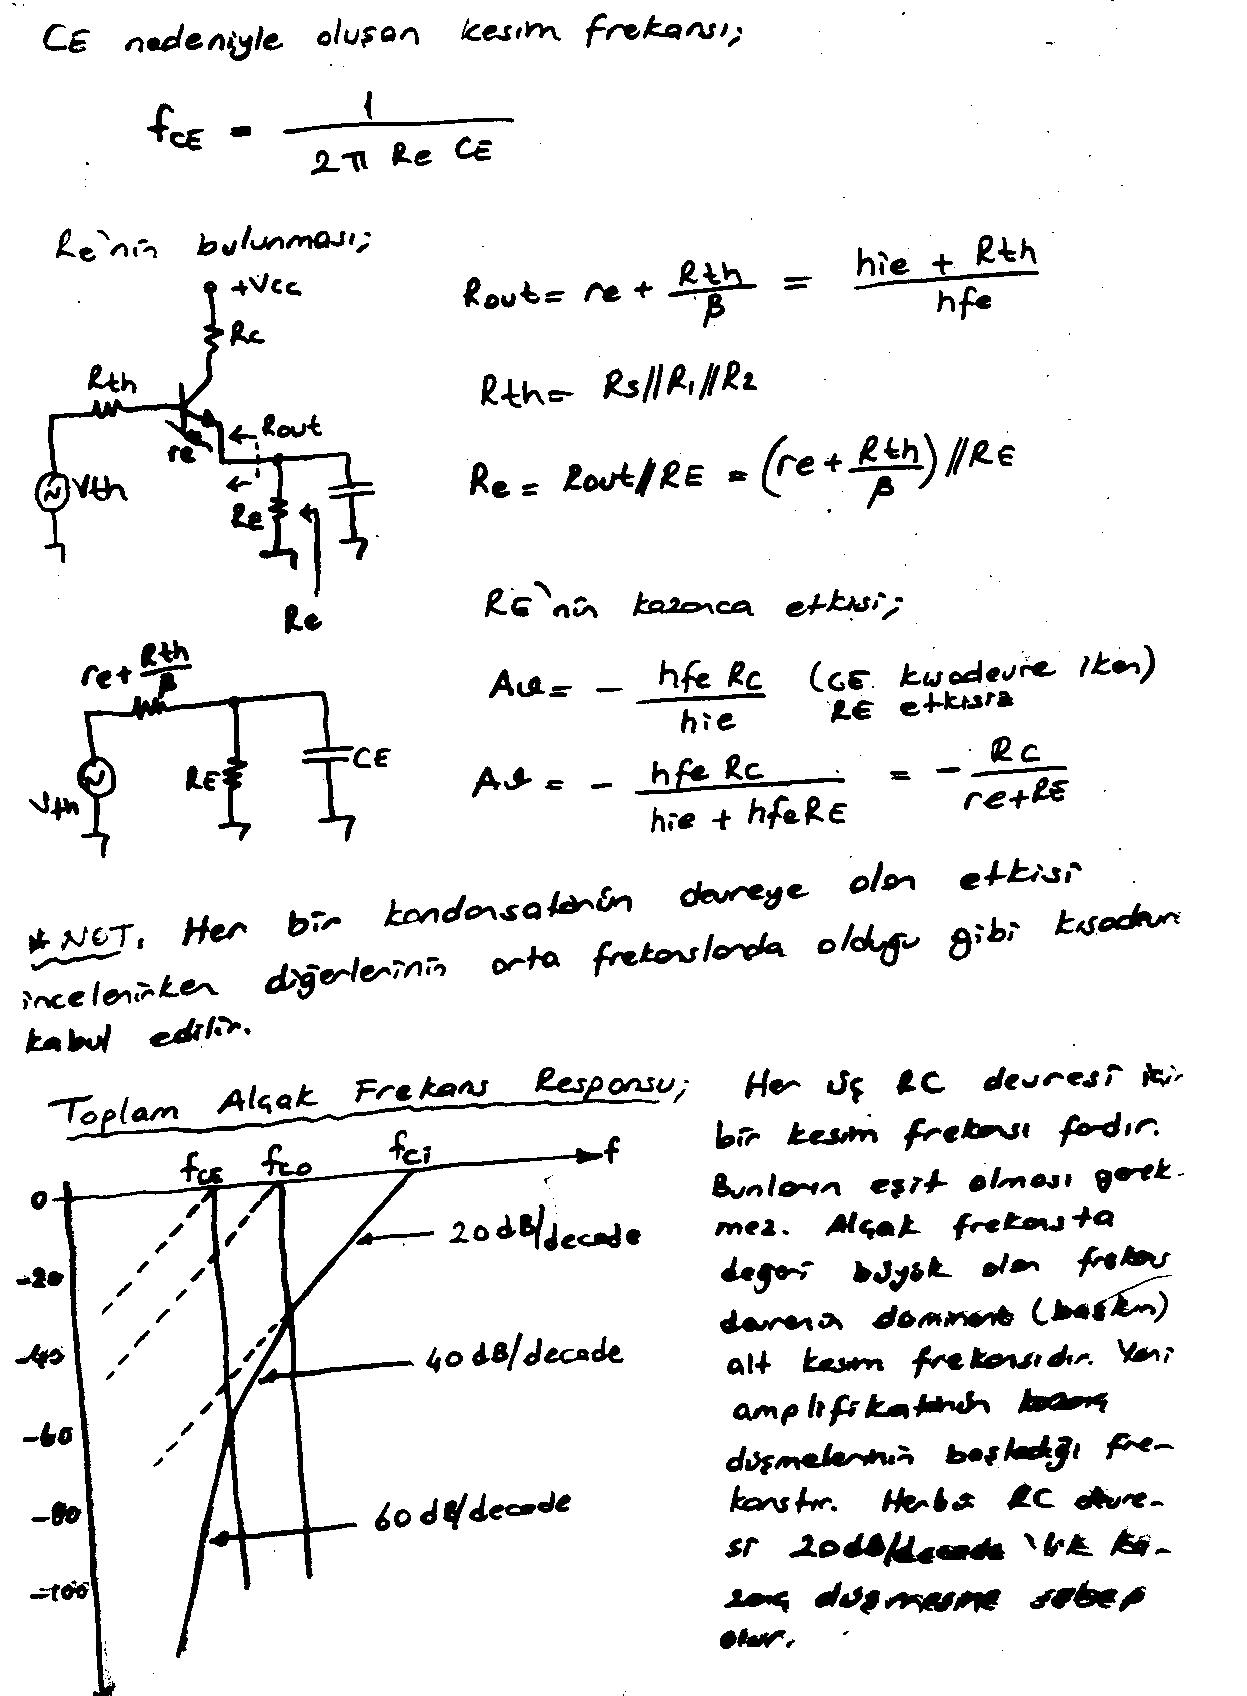 CE nedeniyle oluşan kesim frekansı;
fCE = 1 / 2π Re CE
Re'nin bulunması;
+Vcc
Rc
Rth
re
Rout
Vth
Re
Re
Rout = re + Rth/β = hie + Rth / hfe
Rth = Rs//R1//R2
Re = Rout//RE = (re + Rth/β) //RE
re + Rth/β
RE
CE
Vth
RE'nin kazanca etkisi;
Aυ = - hfe Rc / hie (CE kısadevre iken)
RE etkisiz
Aυ = - hfe Rc / hie + hfe RE = - Rc / re+RE
* NOT. Her bir kondansatörün devreye olan etkisi
incelenirken diğerlerinin orta frekanslarda olduğu gibi kısadevre
kabul edilir.
Toplam Alçak Frekans Responsu;
fCE fCO fCi f
0
-20
-40
-60
-80
-100
20 dB/decade
40 dB/decade
60 dB/decade
Her üç RC devresi için
bir kesim frekansı fardır.
Bunların eşit olması gerek-
mez. Alçak frekansta
değeri büyük olan frekans
devrenin dominant (baskın)
alt kesim frekansıdır. Yani
amplifikatörün kazanç
düşmelerinin başladığı fre-
kanstır. Herbir RC devre-
si 20 dB/decade 'lık ka-
zanç düşmesine sebep
olur.